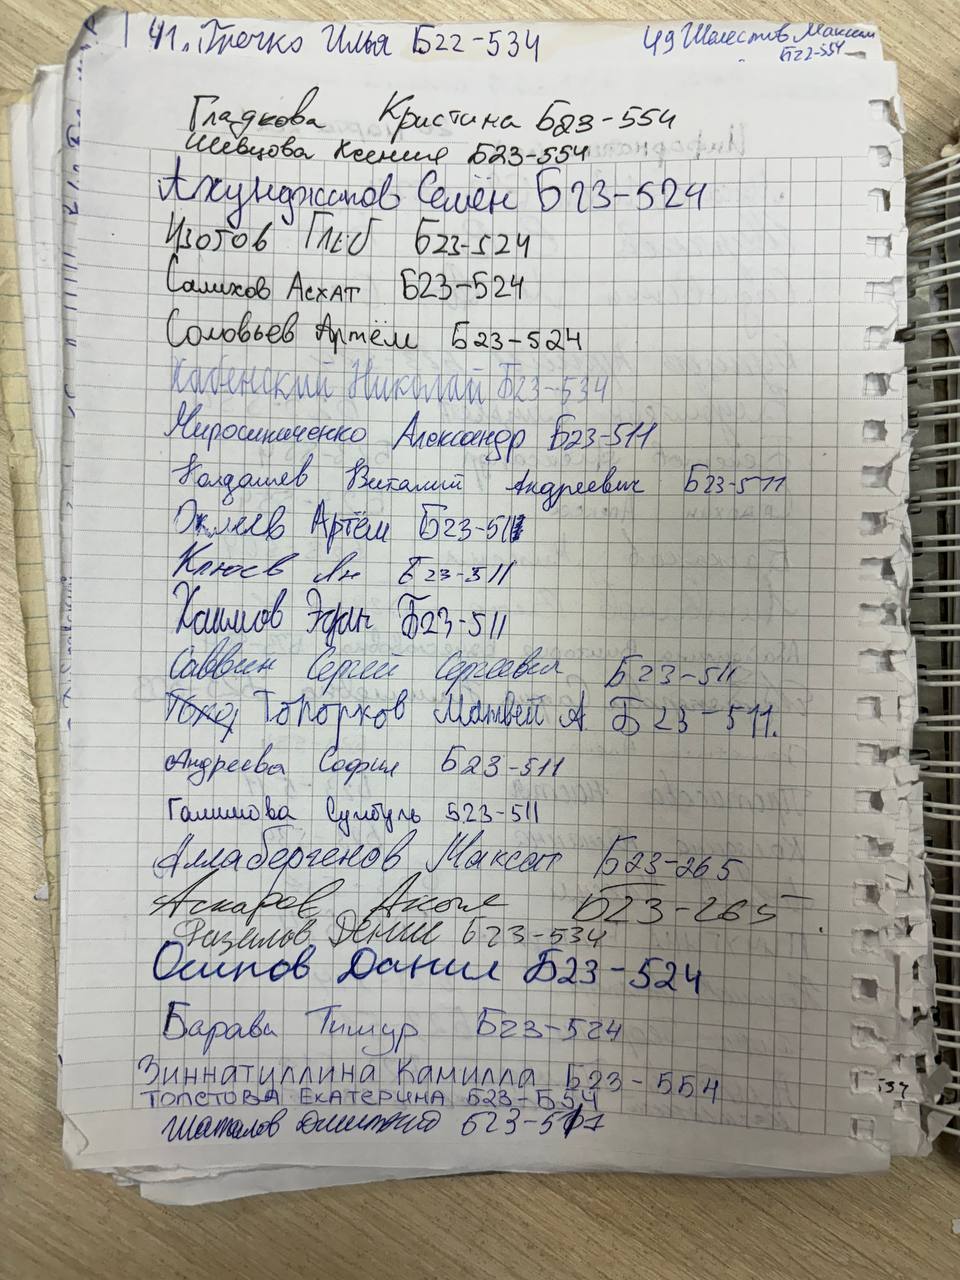 41. Гречко Илья Б22-534
49 Шелестов Максим
Б22-554
Гладкова Кристина Б23-554
Шевцова Ксения Б23-554
Ахунджанов Семён Б23-524
Изотов Глеб Б23-524
Салихов Асхат Б23-524
Соловьев Артём Б23-524
Хабенский Николай Б23-534
Мирошниченко Александр Б23-511
Виталий Андреевич Б23-511
Артём Б23-511
Клюев Ян Б23-511
Хаимов Эфан Б23-511
Саввин Сергей Сергеевич Б23-511
Топорков Матвей А. Б23-511.
Андреева София Б23-511
Галимова Сумбуль Б23-511
Аллабергенов Максат Б23-265
Аскаров Акыл Б23-265
Фазылов Денис Б23-534
Осипов Данил Б23-524
Барава Тимур Б23-524
Зиннатиллина Камилла Б23-554
Толстова Екатерина Б23-554
Шаталов Дмитрий
534